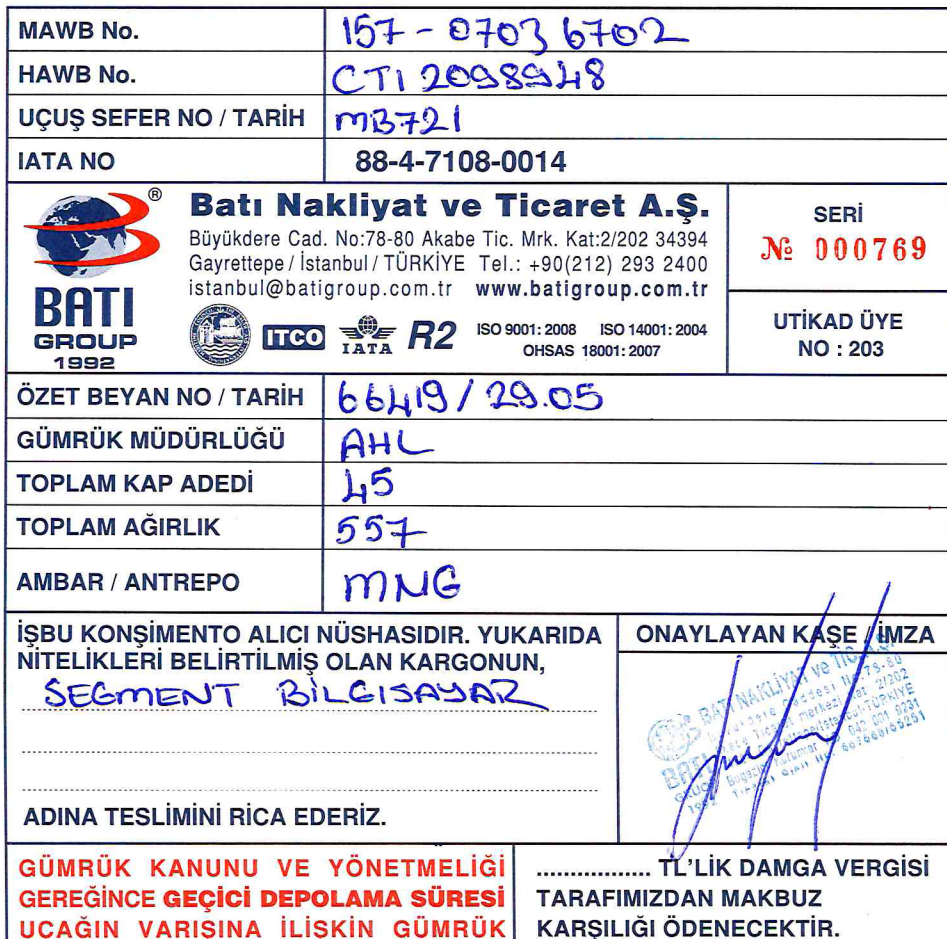 MAWB No. 157 - 0703 6702
HAWB No. CTI 2098948
UÇUŞ SEFER NO / TARİH MB721
IATA NO 88-4-7108-0014
Batı Nakliyat ve Ticaret A.Ş.
Büyükdere Cad. No:78-80 Akabe Tic. Mrk. Kat:2/202 34394
Gayrettepe / İstanbul / TÜRKİYE Tel.: +90(212) 293 2400
istanbul@batigroup.com.tr www.batigroup.com.tr
BATI
GROUP
1992
ITCO IATA R2 ISO 9001: 2008 ISO 14001: 2004
OHSAS 18001: 2007
SERİ
№ 000769
UTİKAD ÜYE
NO : 203
ÖZET BEYAN NO / TARİH 66419 / 29.05
GÜMRÜK MÜDÜRLÜĞÜ AHL
TOPLAM KAP ADEDİ 45
TOPLAM AĞIRLIK 557
AMBAR / ANTREPO MNG
İŞBU KONŞİMENTO ALICI NÜSHASIDIR. YUKARIDA
NİTELİKLERİ BELİRTİLMİŞ OLAN KARGONUN,
SEGMENT BİLGİSAYAR
ADINA TESLİMİNİ RİCA EDERİZ.
ONAYLAYAN KAŞE / İMZA
BATI NAKLİYAT ve TİC. A.Ş.
GÜMRÜK KANUNU VE YÖNETMELİĞİ
GEREĞİNCE GEÇİCİ DEPOLAMA SÜRESİ
UÇAĞIN VARIŞINA İLİŞKİN GÜMRÜK
.................. TL'LİK DAMGA VERGİSİ
TARAFIMIZDAN MAKBUZ
KARŞILIĞI ÖDENECEKTİR.